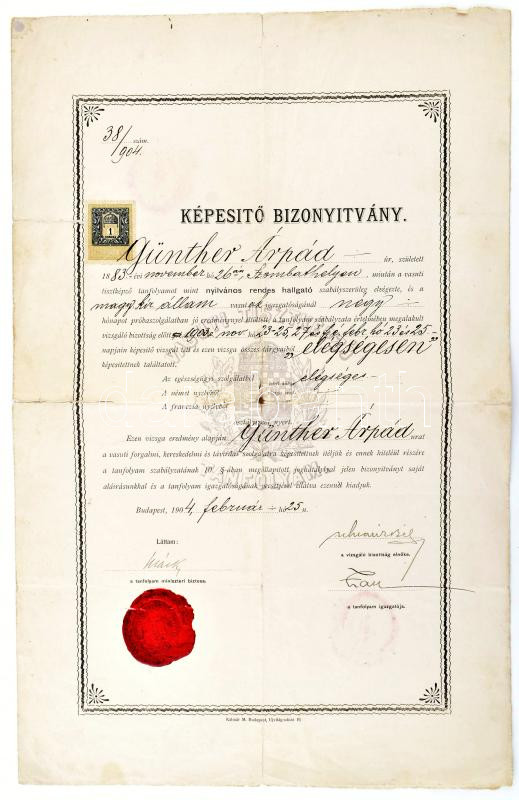 38/904. szám.
1
KÉPESITŐ BIZONYITVÁNY.
Günther Árpád úr, született
1883 évi november hó 26án, Szombathelyen, miután a vasuti
tisztképző tanfolyamot mint nyilvános rendes hallgató szabályszerüleg elvégezte, és a
magy. kir. állam vasutak igazgatóságánál négy
hónapot próbaszolgálatban jó eredménynyel töltött, a tanfolyam szabályzata értelmében megalakult
vizsgáló bizottság előtt 1903 nov hó 23-25, 27 és f. é. febr. hó 23 és 25-
napjain képesitő vizsgát tett és ezen vizsga összes tárgyaiból „elégségesen”
képesitettnek találtatott.
Az egészségügyi szolgálatból elégséges
A német nyelvből
A franczia nyelvből
osztályzatot nyert.
Ezen vizsga eredmény alapján Günther Árpád urat
a vasuti forgalmi, kereskedelmi és távirdai szolgálatra képesitettnek itéljük és ennek hiteléül részére
a tanfolyam szabályzatának 10. §-ában megállapitott joghatálylyal jelen bizonyitványt saját
aláirásunkkal és a tanfolyam igazgatóságának pecsétjével ellátva ezennel kiadjuk.
Budapest, 1904, február hó 25 n.
Láttam:
a vizsgáló bizottság elnöke.
a tanfolyam miniszteri biztosa.
a tanfolyam igazgatója.
TANFOLYAM
Kalmár M. Budapest,